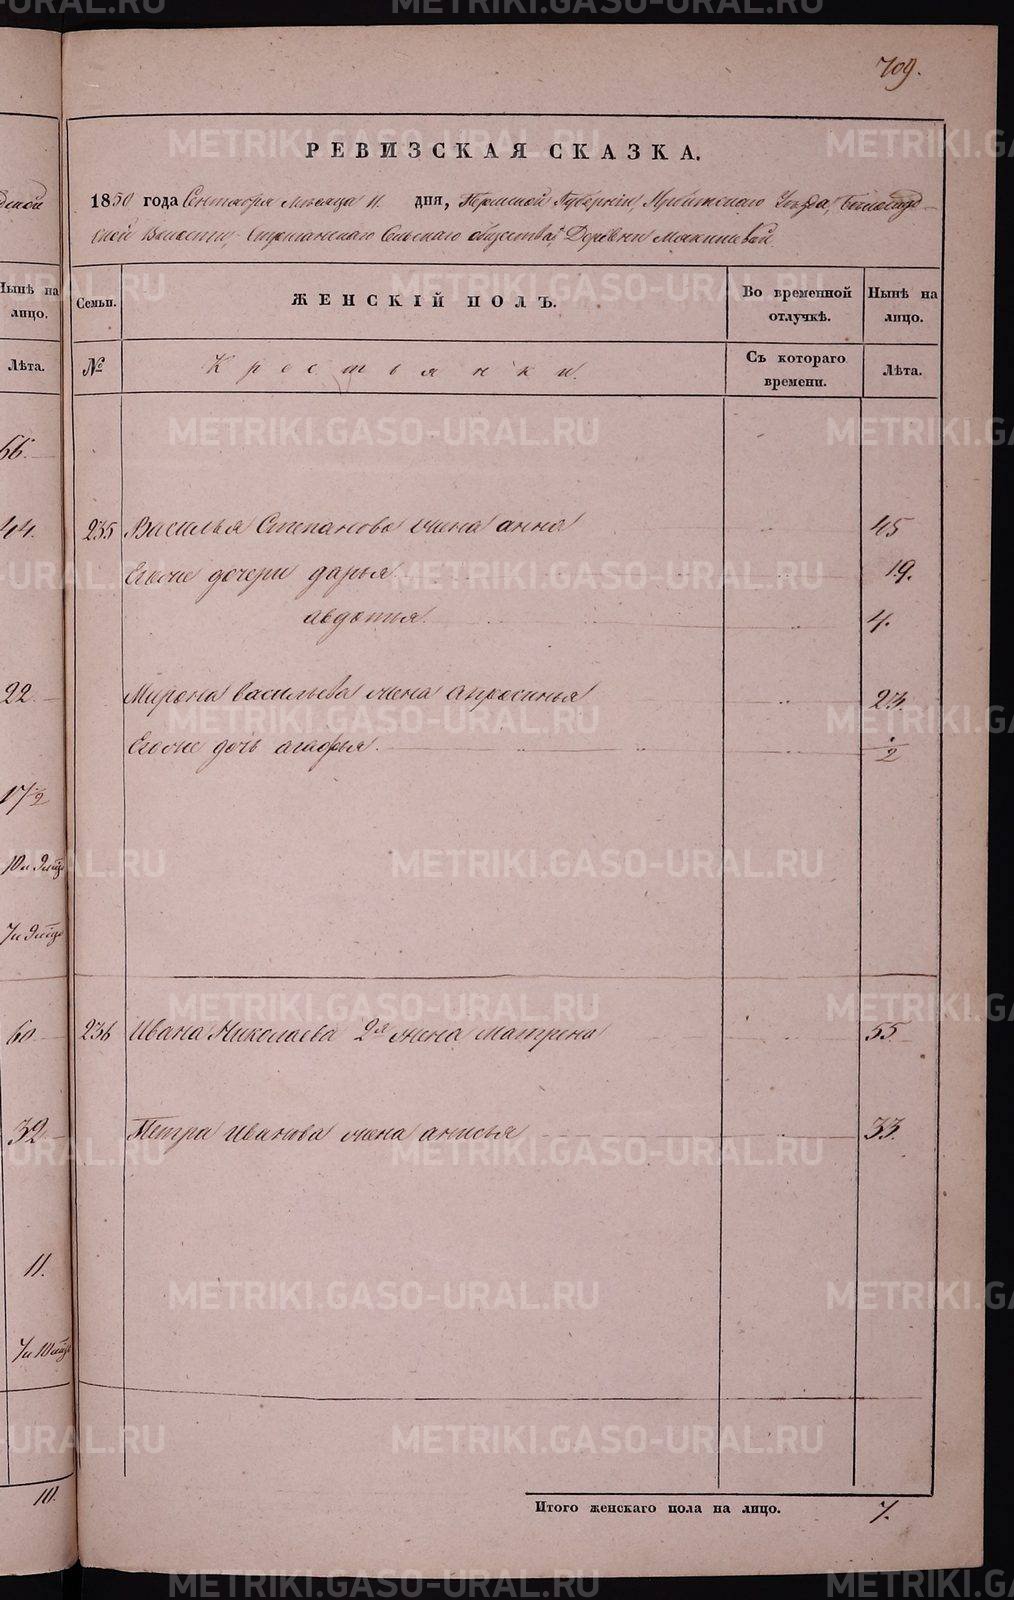 709.
РЕВИЗСКАЯ СКАЗКА.
1850 года Сентября Месяца 11 дня, Пермской Губернии, Ирбитскаго Уѣзда, Белослуд-
ской Волости, Стриганскаго Сельскаго общества, Деревни Мокишевой.
Семьи. ЖЕНСКІЙ ПОЛЪ. Во временной отлучкѣ. Нынѣ на лицо.
№ Крестьянки. Съ котораго времени. Лѣта.
235 Василья Степанова жена анна 45
Егоже дочери дарья 19.
авдотья. 4.
Мирона васильева жена апросинья 23.
Егоже дочь агафья. 1/2
236 Ивана Николаева 2я жена матрена 55
Петра иванова жена анисья 33.
Итого женскаго пола на лицо. 7.
дской
Нынѣ на
лицо.
Лѣта.
66.
44.
22.
17 1/2
10 и 9 мѣс
7 и 9 мѣс
60
32
11.
7 и 10 мѣс
10.
METRIKI.GASO-URAL.RU